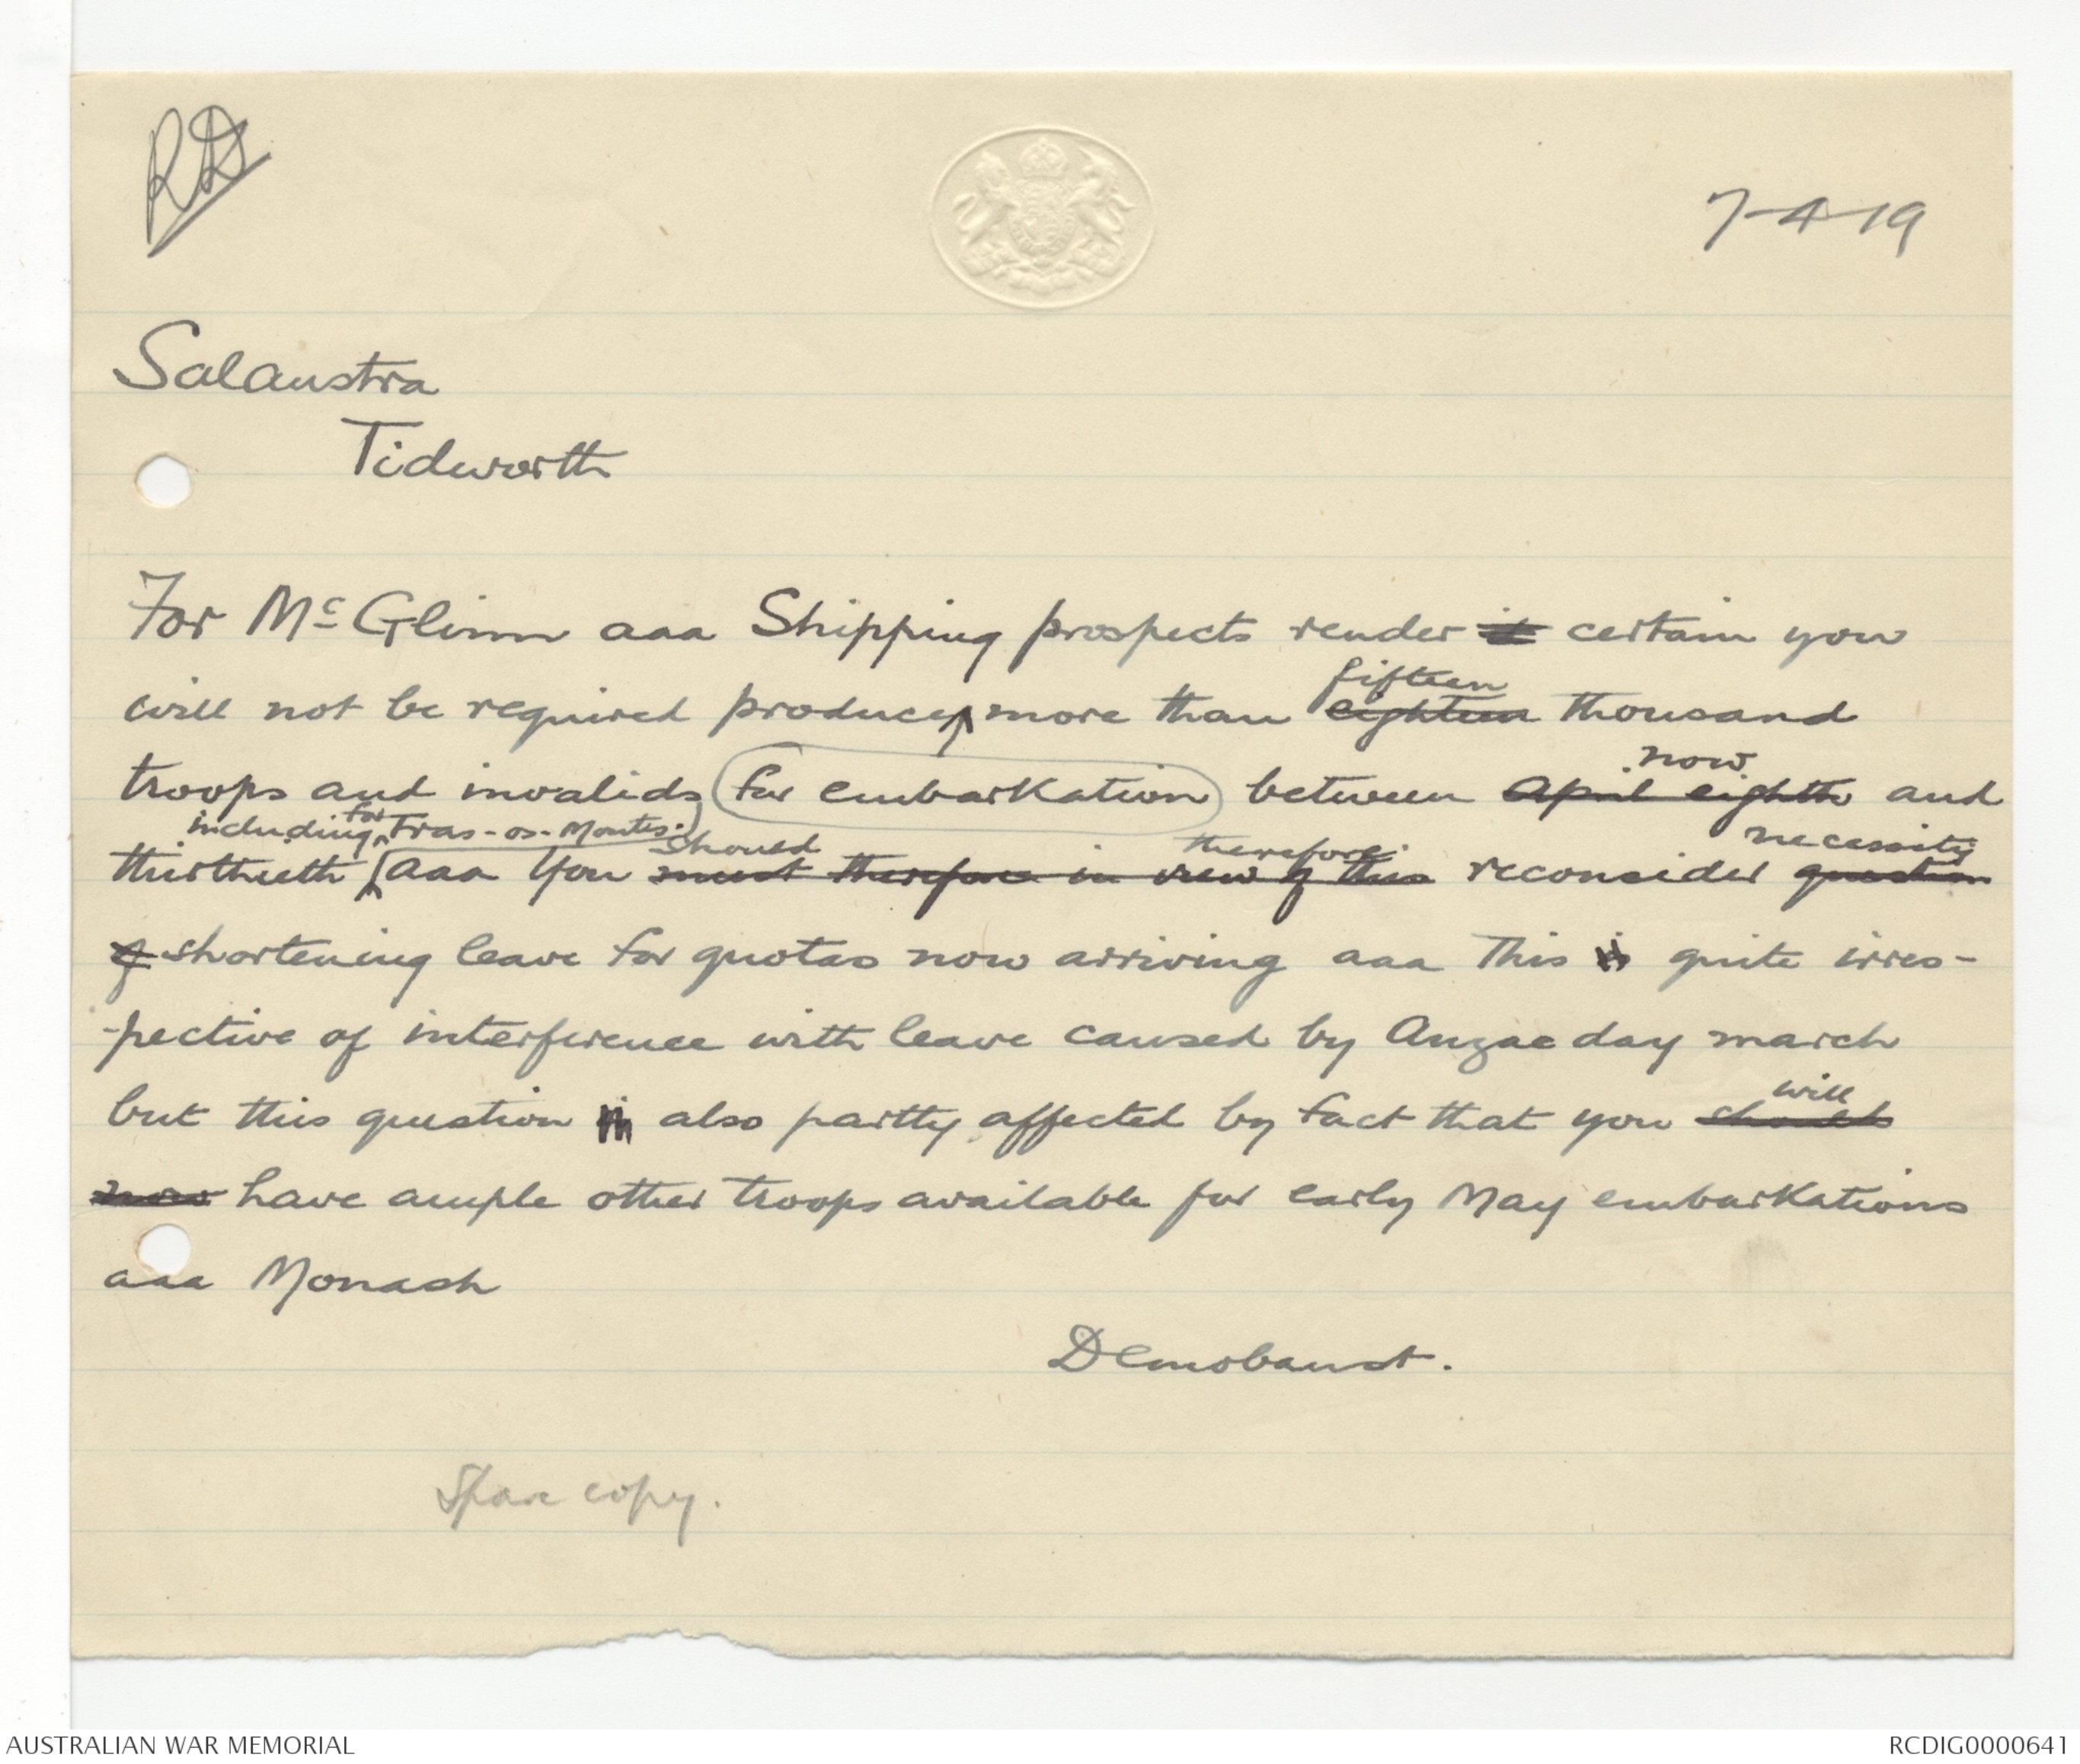 RD
7-4-19
Salaustra
Tidworth
For McGlinn aaa Shipping prospects render it certain you
fifteen
will not be required produce more than eighteen thousand
now
troops and invalids for embarkation between April eighth and
including for Tras-os-Montes. should therefore necessity
thirtieth aaa You must therefore in view of this reconsider question
of shortening leave for quotas now arriving aaa This is quite irres-
-pective of interference with leave caused by Anzac day march
will
but this question is also partly affected by fact that you should
now have ample other troops available for early May embarkations
aaa Monash
Demobaust.
Spare copy.
AUSTRALIAN WAR MEMORIAL
RCDIG0000641